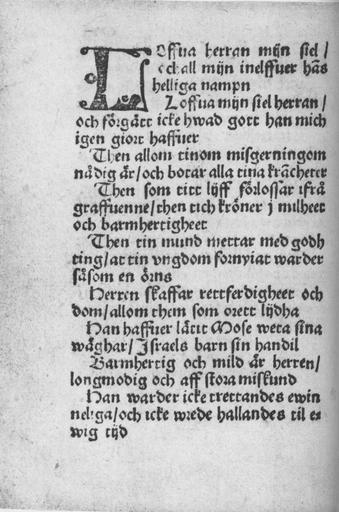 Loffua herran mijn siel /
och all mijn inelffuer hãs
helliga nampn
Loffua mijn siel herran /
och förgätt icke hwad gott han mich
igen giort haffuer
Then allom tinom misgerningom
nådig är / och botar alla tina krãcheter
Then som titt lijff förlossar ifrå
graffuenne / then tich kröner j milheet
och barmhertigheet
Then tin mund mettar med godh
ting / at tin vngdom fornyiat warder
såsom en örns
Herren skaffar rettferdigheet och
dom / allom them som orett lijdha
Han haffuer lätit Mose weta sina
wäghar / Israels barn sin handil
Barmhertig och mild är herren /
longmodig och aff stora miskund
Han warder icke trettandes ewin
neliga / och icke wrede hallandes til e
wig tijd